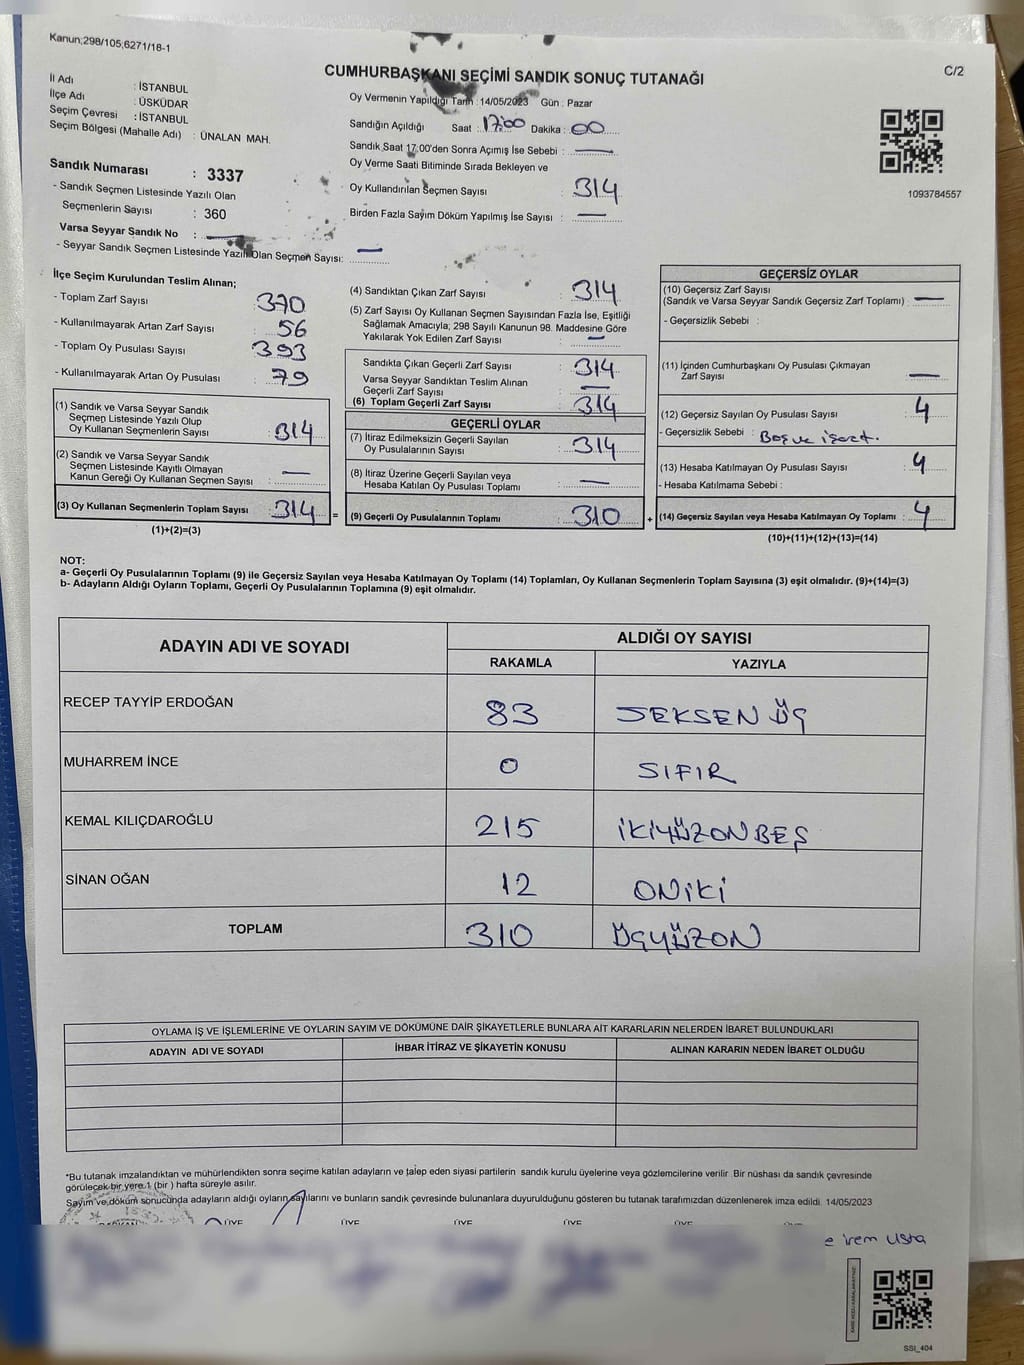 Kanun;298/105;6271/18-1
C/2
CUMHURBAŞKANI SEÇİMİ SANDIK SONUÇ TUTANAĞI
İl Adı : İSTANBUL
İlçe Adı : ÜSKÜDAR
Seçim Çevresi : İSTANBUL
Seçim Bölgesi (Mahalle Adı) : ÜNALAN MAH.
Sandık Numarası : 3337
- Sandık Seçmen Listesinde Yazılı Olan
Seçmenlerin Sayısı : 360
Varsa Seyyar Sandık No :
- Seyyar Sandık Seçmen Listesinde Yazılı Olan Seçmen Sayısı:
Oy Vermenin Yapıldığı Tarih : 14/05/2023 Gün : Pazar
Sandığın Açıldığı Saat : 17:00 Dakika : 00
Sandık Saat 17:00'den Sonra Açımış İse Sebebi :
Oy Verme Saati Bitiminde Sırada Bekleyen ve
Oy Kullandırılan Seçmen Sayısı : 314
Birden Fazla Sayım Döküm Yapılmış İse Sayısı :
1093784557
İlçe Seçim Kurulundan Teslim Alınan;
- Toplam Zarf Sayısı : 370
- Kullanılmayarak Artan Zarf Sayısı : 56
- Toplam Oy Pusulası Sayısı : 393
- Kullanılmayarak Artan Oy Pusulası : 79
(1) Sandık ve Varsa Seyyar Sandık
Seçmen Listesinde Yazılı Olup
Oy Kullanan Seçmenlerin Sayısı : 314
(2) Sandık ve Varsa Seyyar Sandık
Seçmen Listesinde Kayıtlı Olmayan
Kanun Gereği Oy Kullanan Seçmen Sayısı :
(3) Oy Kullanan Seçmenlerin Toplam Sayısı : 314 =
(1)+(2)=(3)
(4) Sandıktan Çıkan Zarf Sayısı : 314
(5) Zarf Sayısı Oy Kullanan Seçmen Sayısından Fazla İse, Eşitliği
Sağlamak Amacıyla; 298 Sayılı Kanunun 98. Maddesine Göre
Yakılarak Yok Edilen Zarf Sayısı :
Sandıkta Çıkan Geçerli Zarf Sayısı : 314
Varsa Seyyar Sandıktan Teslim Alınan
Geçerli Zarf Sayısı :
(6) Toplam Geçerli Zarf Sayısı : 314
GEÇERLİ OYLAR
(7) İtiraz Edilmeksizin Geçerli Sayılan
Oy Pusulalarının Sayısı : 314
(8) İtiraz Üzerine Geçerli Sayılan veya
Hesaba Katılan Oy Pusulası Toplamı :
(9) Geçerli Oy Pusulalarının Toplamı : 310 +
GEÇERSİZ OYLAR
(10) Geçersiz Zarf Sayısı
(Sandık ve Varsa Seyyar Sandık Geçersiz Zarf Toplamı) :
- Geçersizlik Sebebi :
(11) İçinden Cumhurbaşkanı Oy Pusulası Çıkmayan
Zarf Sayısı :
(12) Geçersiz Sayılan Oy Pusulası Sayısı : 4
- Geçersizlik Sebebi : Boş ve işart.
(13) Hesaba Katılmayan Oy Pusulası Sayısı : 4
- Hesaba Katılmama Sebebi :
(14) Geçersiz Sayılan veya Hesaba Katılmayan Oy Toplamı : 4
(10)+(11)+(12)+(13)=(14)
NOT:
a- Geçerli Oy Pusulalarının Toplamı (9) ile Geçersiz Sayılan veya Hesaba Katılmayan Oy Toplamı (14) Toplamları, Oy Kullanan Seçmenlerin Toplam Sayısına (3) eşit olmalıdır. (9)+(14)=(3)
b- Adayların Aldığı Oyların Toplamı, Geçerli Oy Pusulalarının Toplamına (9) eşit olmalıdır.
ADAYIN ADI VE SOYADI ALDIĞI OY SAYISI
RAKAMLA YAZIYLA
RECEP TAYYİP ERDOĞAN 83 SEKSEN ÜÇ
MUHARREM İNCE 0 SIFIR
KEMAL KILIÇDAROĞLU 215 İKİYÜZONBEŞ
SİNAN OĞAN 12 ONİKİ
TOPLAM 310 ÜÇYÜZON
OYLAMA İŞ VE İŞLEMLERİNE VE OYLARIN SAYIM VE DÖKÜMÜNE DAİR ŞİKAYETLERLE BUNLARA AİT KARARLARIN NELERDEN İBARET BULUNDUKLARI
ADAYIN ADI VE SOYADI İHBAR İTİRAZ VE ŞİKAYETİN KONUSU ALINAN KARARIN NEDEN İBARET OLDUĞU
*Bu tutanak imzalandıktan ve mühürlendikten sonra seçime katılan adayların ve talep eden siyasi partilerin sandık kurulu üyelerine veya gözlemcilerine verilir .Bir nüshası da sandık çevresinde
görülecek bir yere 1 (bir ) hafta süreyle asılır.
Sayım ve döküm sonucunda adayların aldığı oyların sayılarını ve bunların sandık çevresinde bulunanlara duyurulduğunu gösteren bu tutanak tarafımızdan düzenlenerek imza edildi. 14/05/2023
ÜYE ÜYE ÜYE ÜYE ÜYE ÜYE
e irem Usta
SSI_404